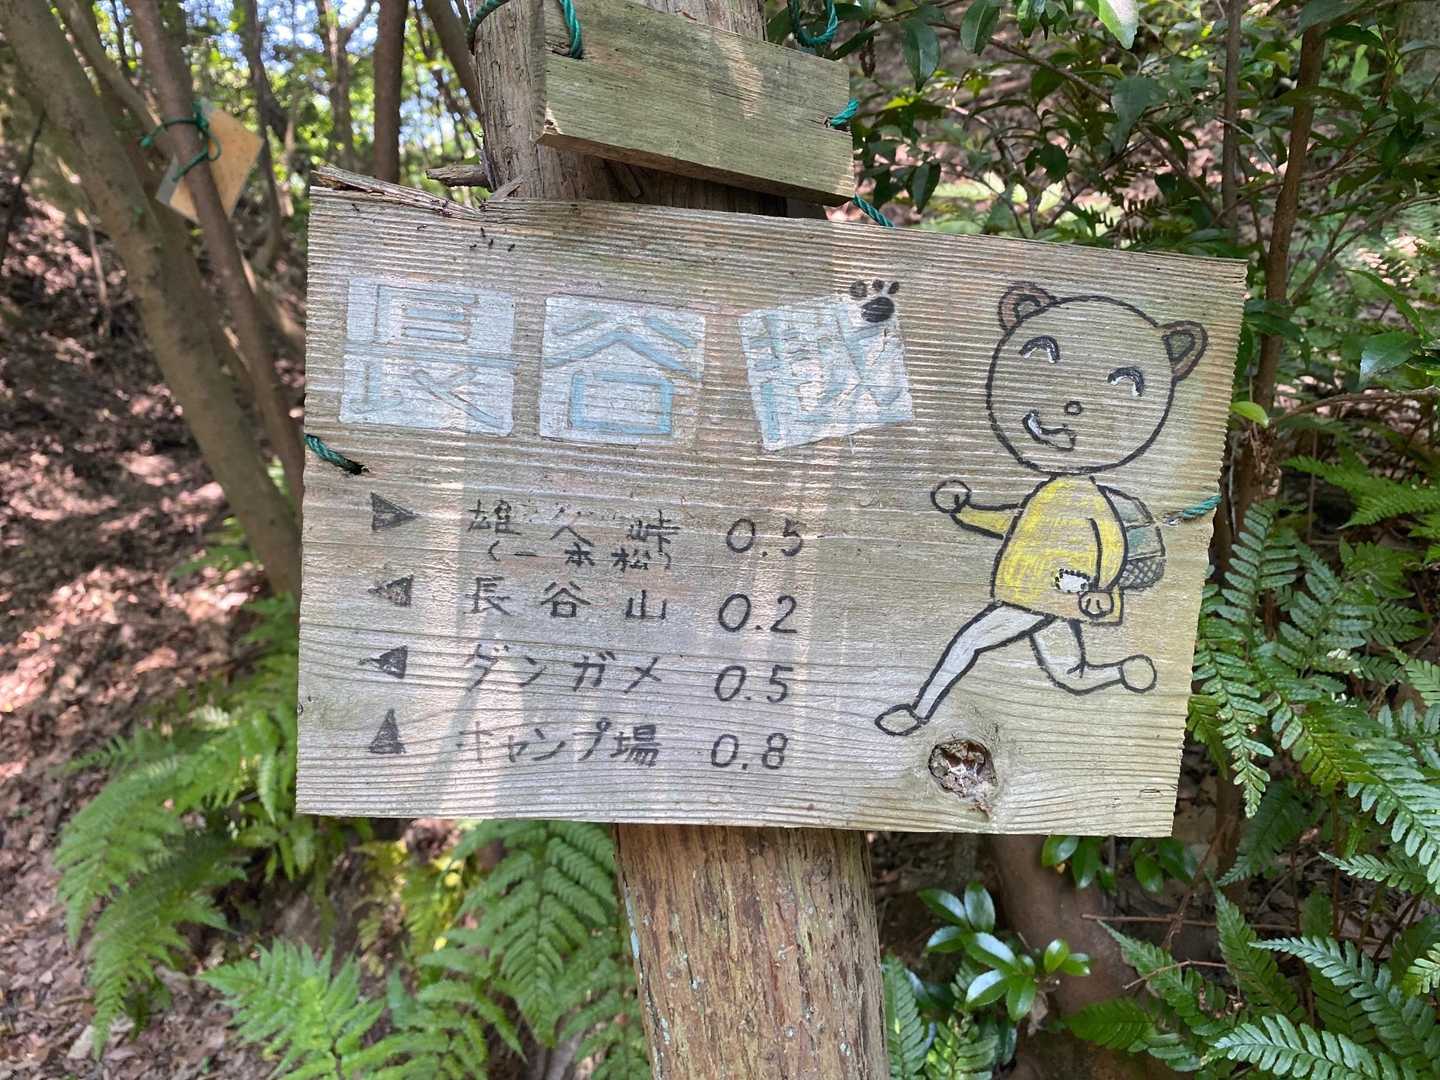 長谷越
▶ 雄久峠 0.5
(一本松)
◀ 長谷山 0.2
◀ ダンガメ 0.5
▲ キャンプ場 0.8